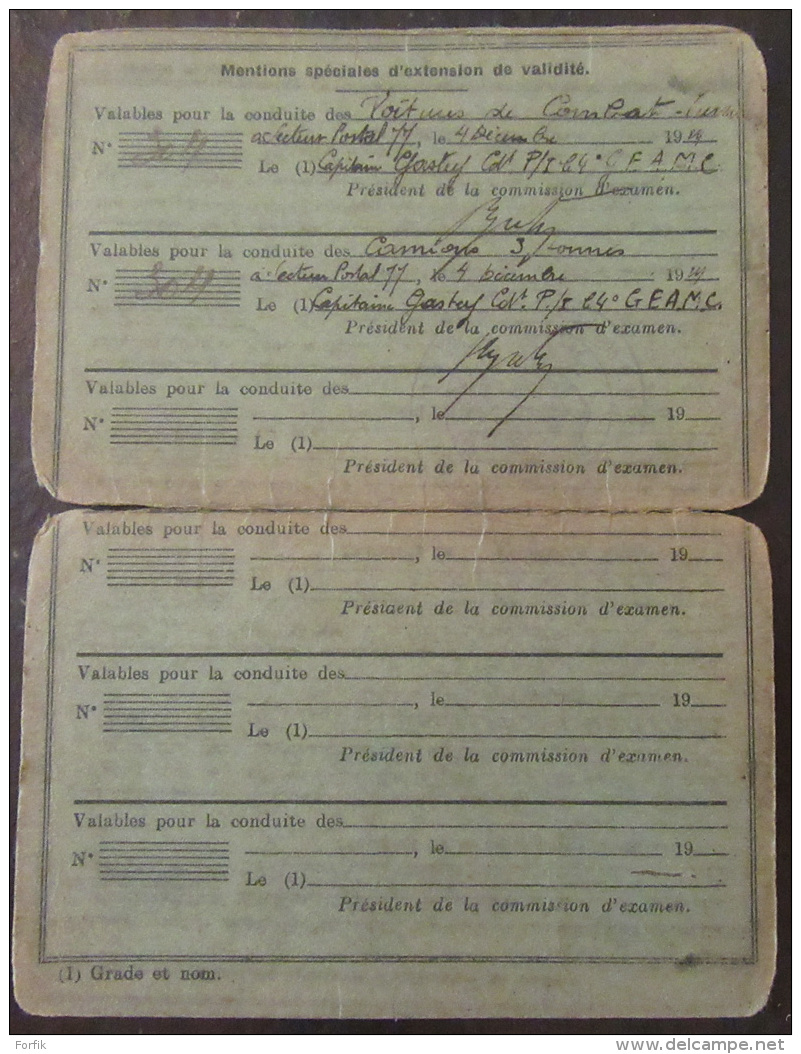 Mentions spéciales d'extension de validité.
Valables pour la conduite des Voitures de Combat
N°
à Secteur Postal 77, le 4 Décembre 1929
Le (1) Capitaine Gastey Cdt P/I
Président de la commission d'examen.
Valables pour la conduite des Camions 3 tonnes
N°
à Secteur Postal 77, le 4 Décembre 1929
Le (1) Capitaine Gastey Cdt. P/I
Président de la commission d'examen.
Valables pour la conduite des
N°
, le 19
Le (1)
Président de la commission d'examen.
Valables pour la conduite des
N°
, le 19
Le (1)
Président de la commission d'examen.
Valables pour la conduite des
N°
, le 19
Le (1)
Président de la commission d'examen.
Valables pour la conduite des
N°
, le 19
Le (1)
Président de la commission d'examen.
(1) Grade et nom.
Forfik
www.delcampe.net